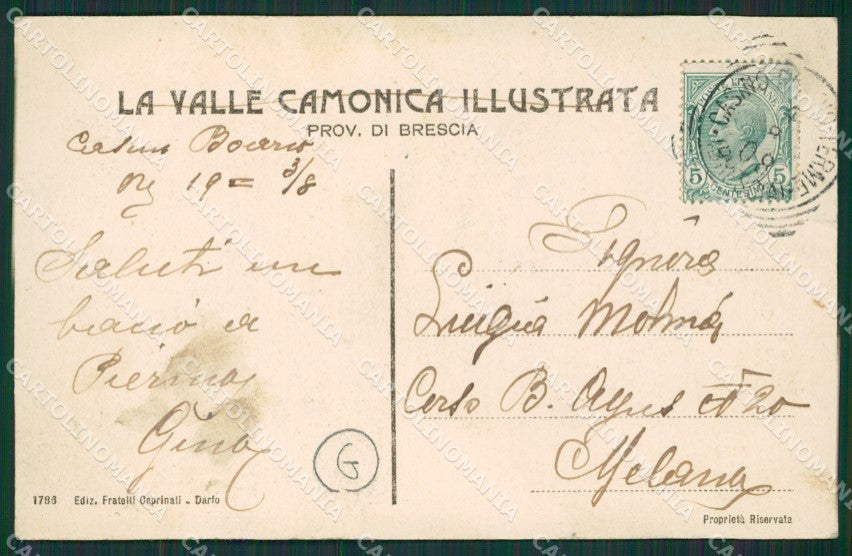 LA VALLE CAMONICA ILLUSTRATA
PROV. DI BRESCIA
Casino Boario
19 = 3/8
Saluti un
bacio a
Pierina
Gina
G
1786 Ediz. Fratelli Caprinali - Darfo
5
CENTESIMI
Signora
Luigia
Corso B.
20
Milano
Proprietà Riservata
CARTOLINOMANIA